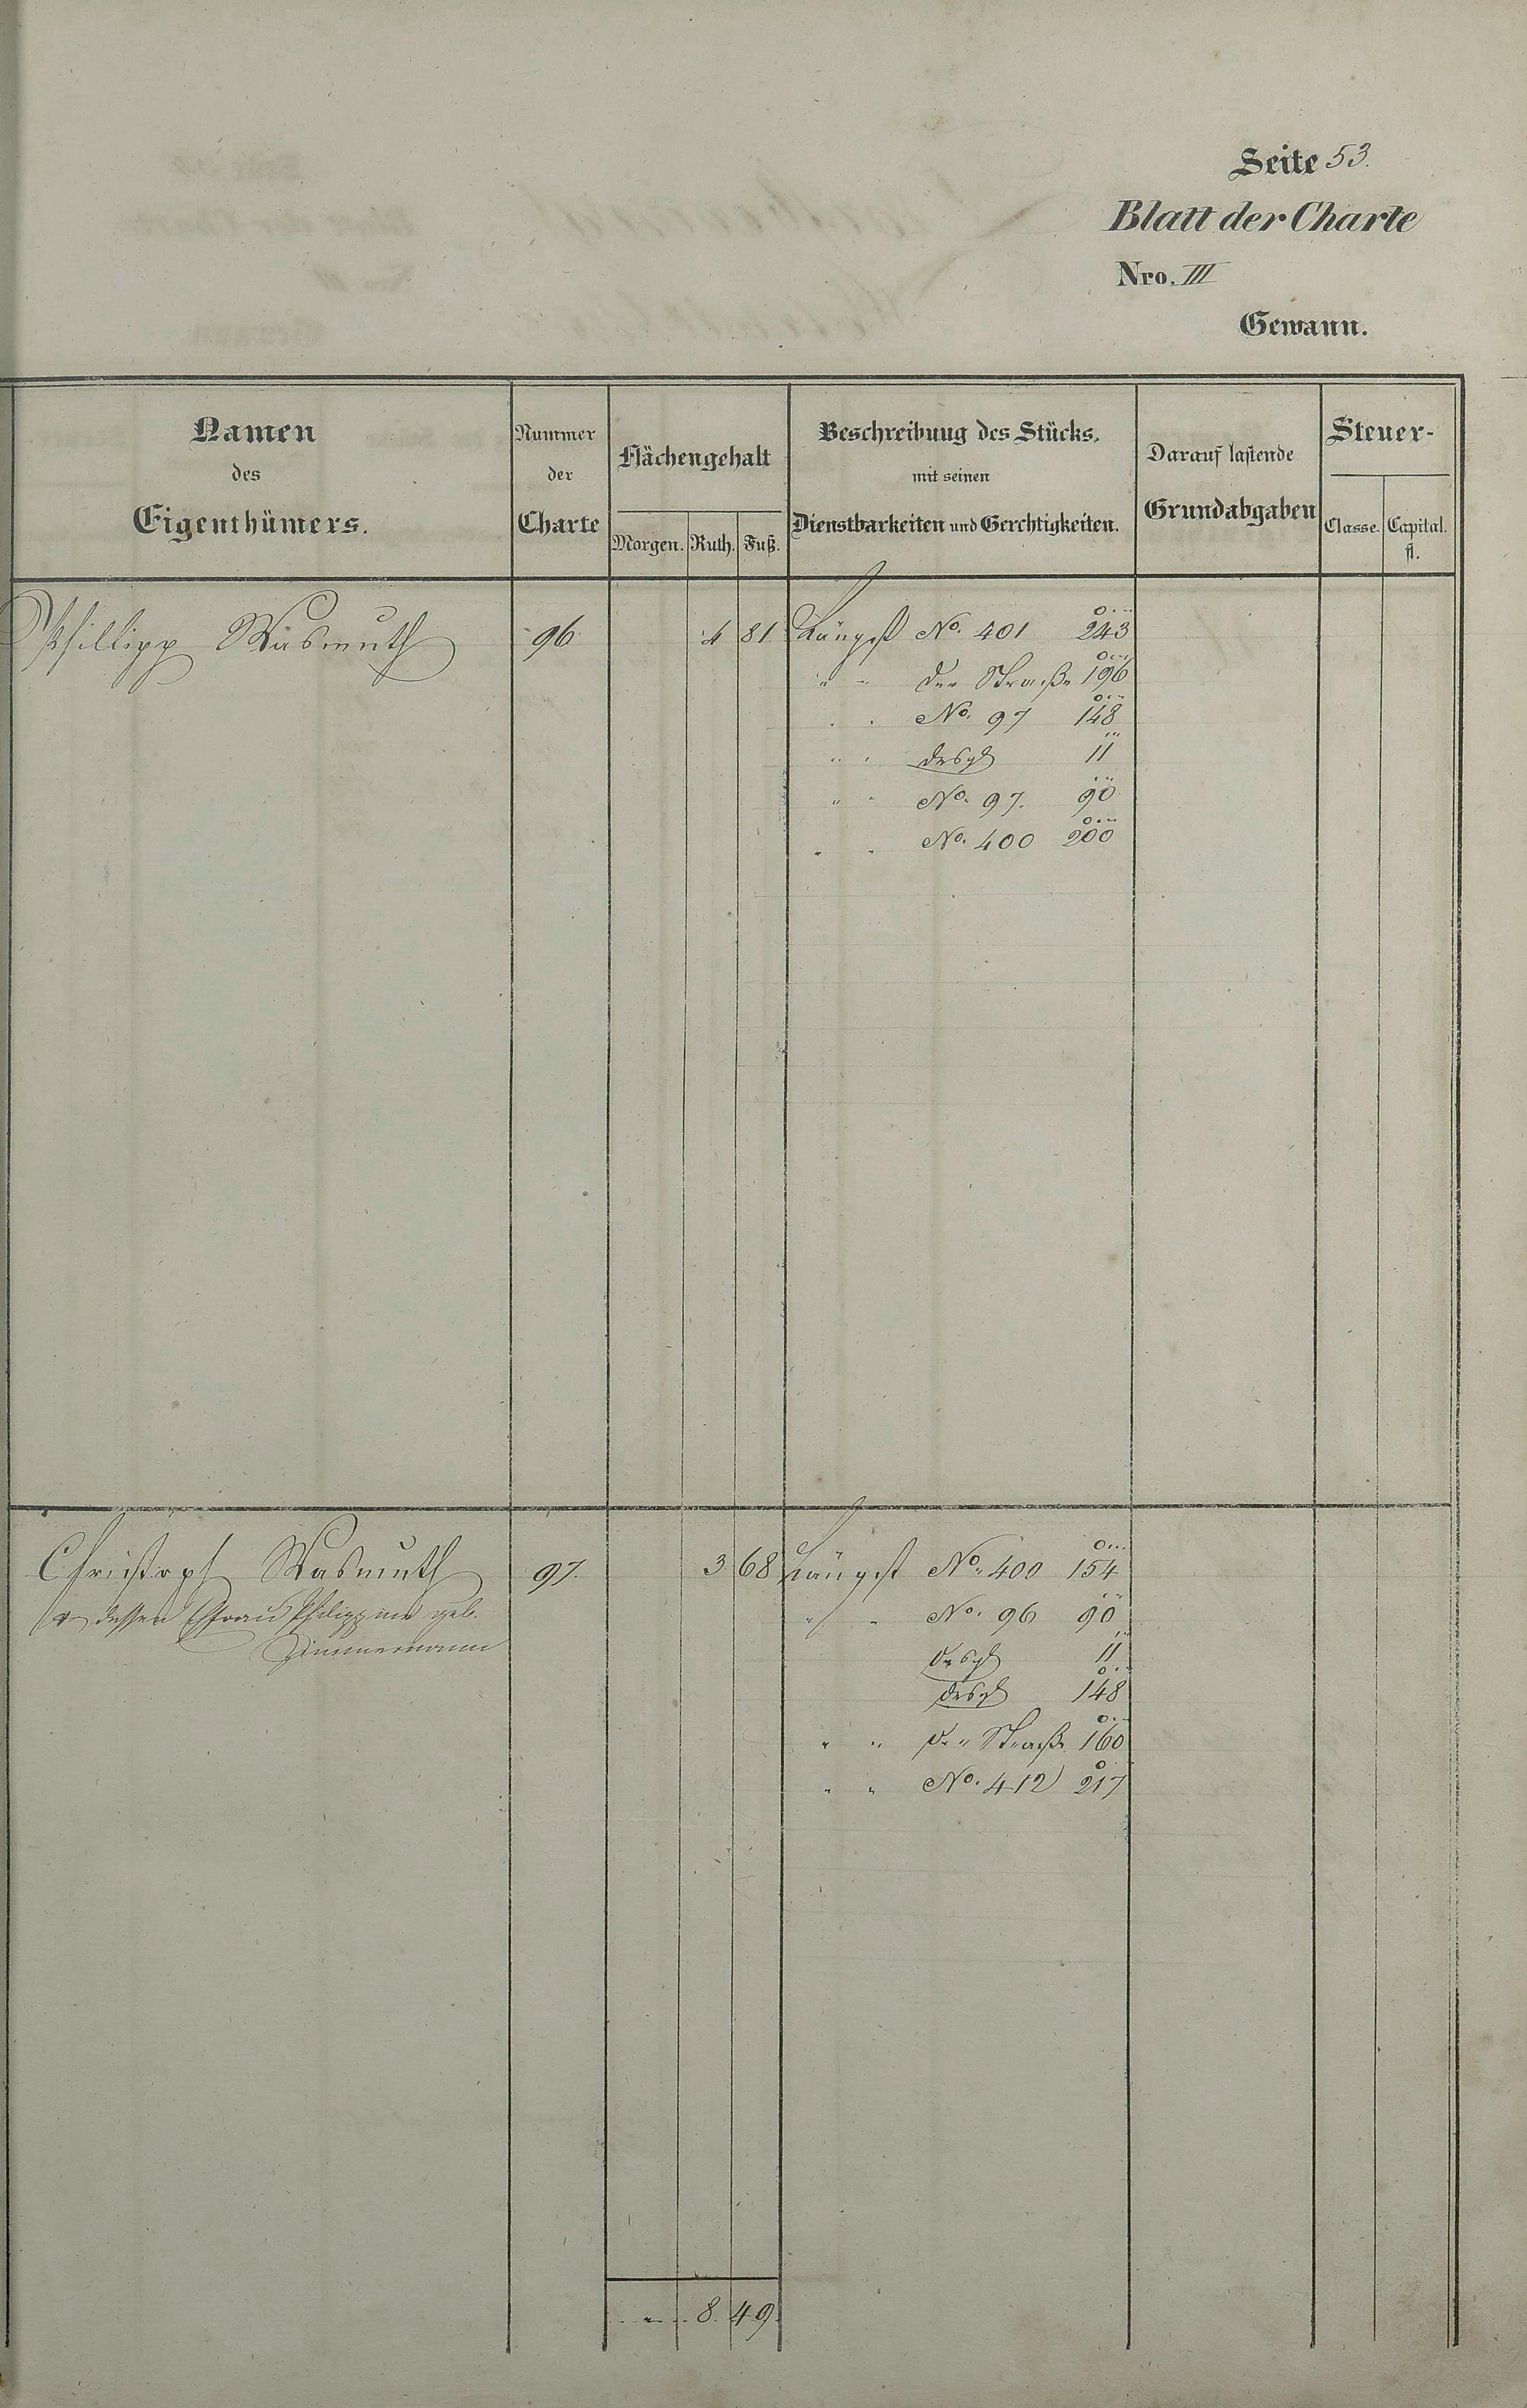 Seite 53.
Blatt der Charte
Nro. III
Gewann.
Namen
des
Eigenthümers.
Nummer
der
Charte
Flächengehalt
Morgen. Ruth. Fuß.
Beschreibung des Stücks,
mit seinen
Dienstbarkeiten und Gerchtigkeiten.
Darauf lastende
Grundabgaben
Steuer-
Classe. Capital.
fl.
Phillipp Wasmuth 96 4 81 Längst No. 401 243
" " der Straße 196
" " No. 97 148
" " desgl 11
" " No. 97. 90
" " No. 400 200
Christoph Wasmuth 97. 3 68 Längst No. 400 154
dessen Frau Philippine geb. " " No. 96 90
Zimmermann desgl 11
desgl 148
" " der Straße 160
" " No. 412 217
" 8. 49.